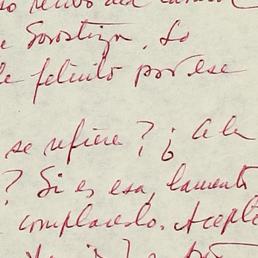 Gorostiza. Lo
le felicito por ese
se refiere? ¿A la
? Si es esa, lamento
complacerlo. Acepte